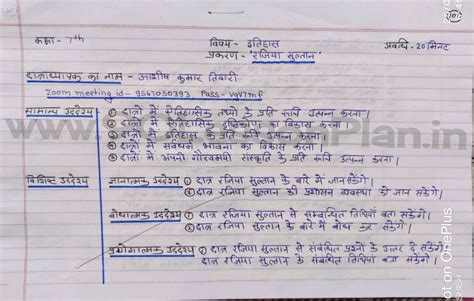 101
कक्षा - 7th विषय - इतिहास अवधि - 20 मिनट
प्रकरण - "रजिया सुल्तान"
छात्राध्यापक का नाम - आशीष कुमार तिवारी
Zoom meeting id - 9561050393 Pass - VqV7mf
सामान्य उद्देश्य ① छात्रों में ऐतिहासिक तथ्यों के प्रति रूचि उत्पन्न करना।
② छात्रों में ऐतिहासिक दृष्टिकोण का विकास करना।
③ छात्रों में इतिहास के प्रति रूचि उत्पन्न करना।
④ छात्रों में भावना का विकास करना।
⑤ छात्रों में अपनी गौरवमयी संस्कृति के प्रति रूचि उत्पन्न करना।
विशिष्ट उद्देश्य ज्ञानात्मक उद्देश्य ① छात्र रजिया सुल्तान के बारे में जान सकेंगे।
② छात्र रजिया सुल्तान की प्रशासन व्यवस्था को जान सकेंगे।
बोधात्मक उद्देश्य ① छात्र रजिया सुल्तान से सम्बन्धित तिथियाँ बता सकेंगे।
② छात्र रजिया सुल्तान के बारे में बोध कर सकेंगे।
प्रयोगात्मक उद्देश्य ① छात्र रजिया सुल्तान से संबंधित प्रश्नों के उत्तर दे सकेंगे।
छात्र रजिया सुल्तान के संबंधित तिथियाँ बता सकेंगे।
Plan.in
ot on OnePlus